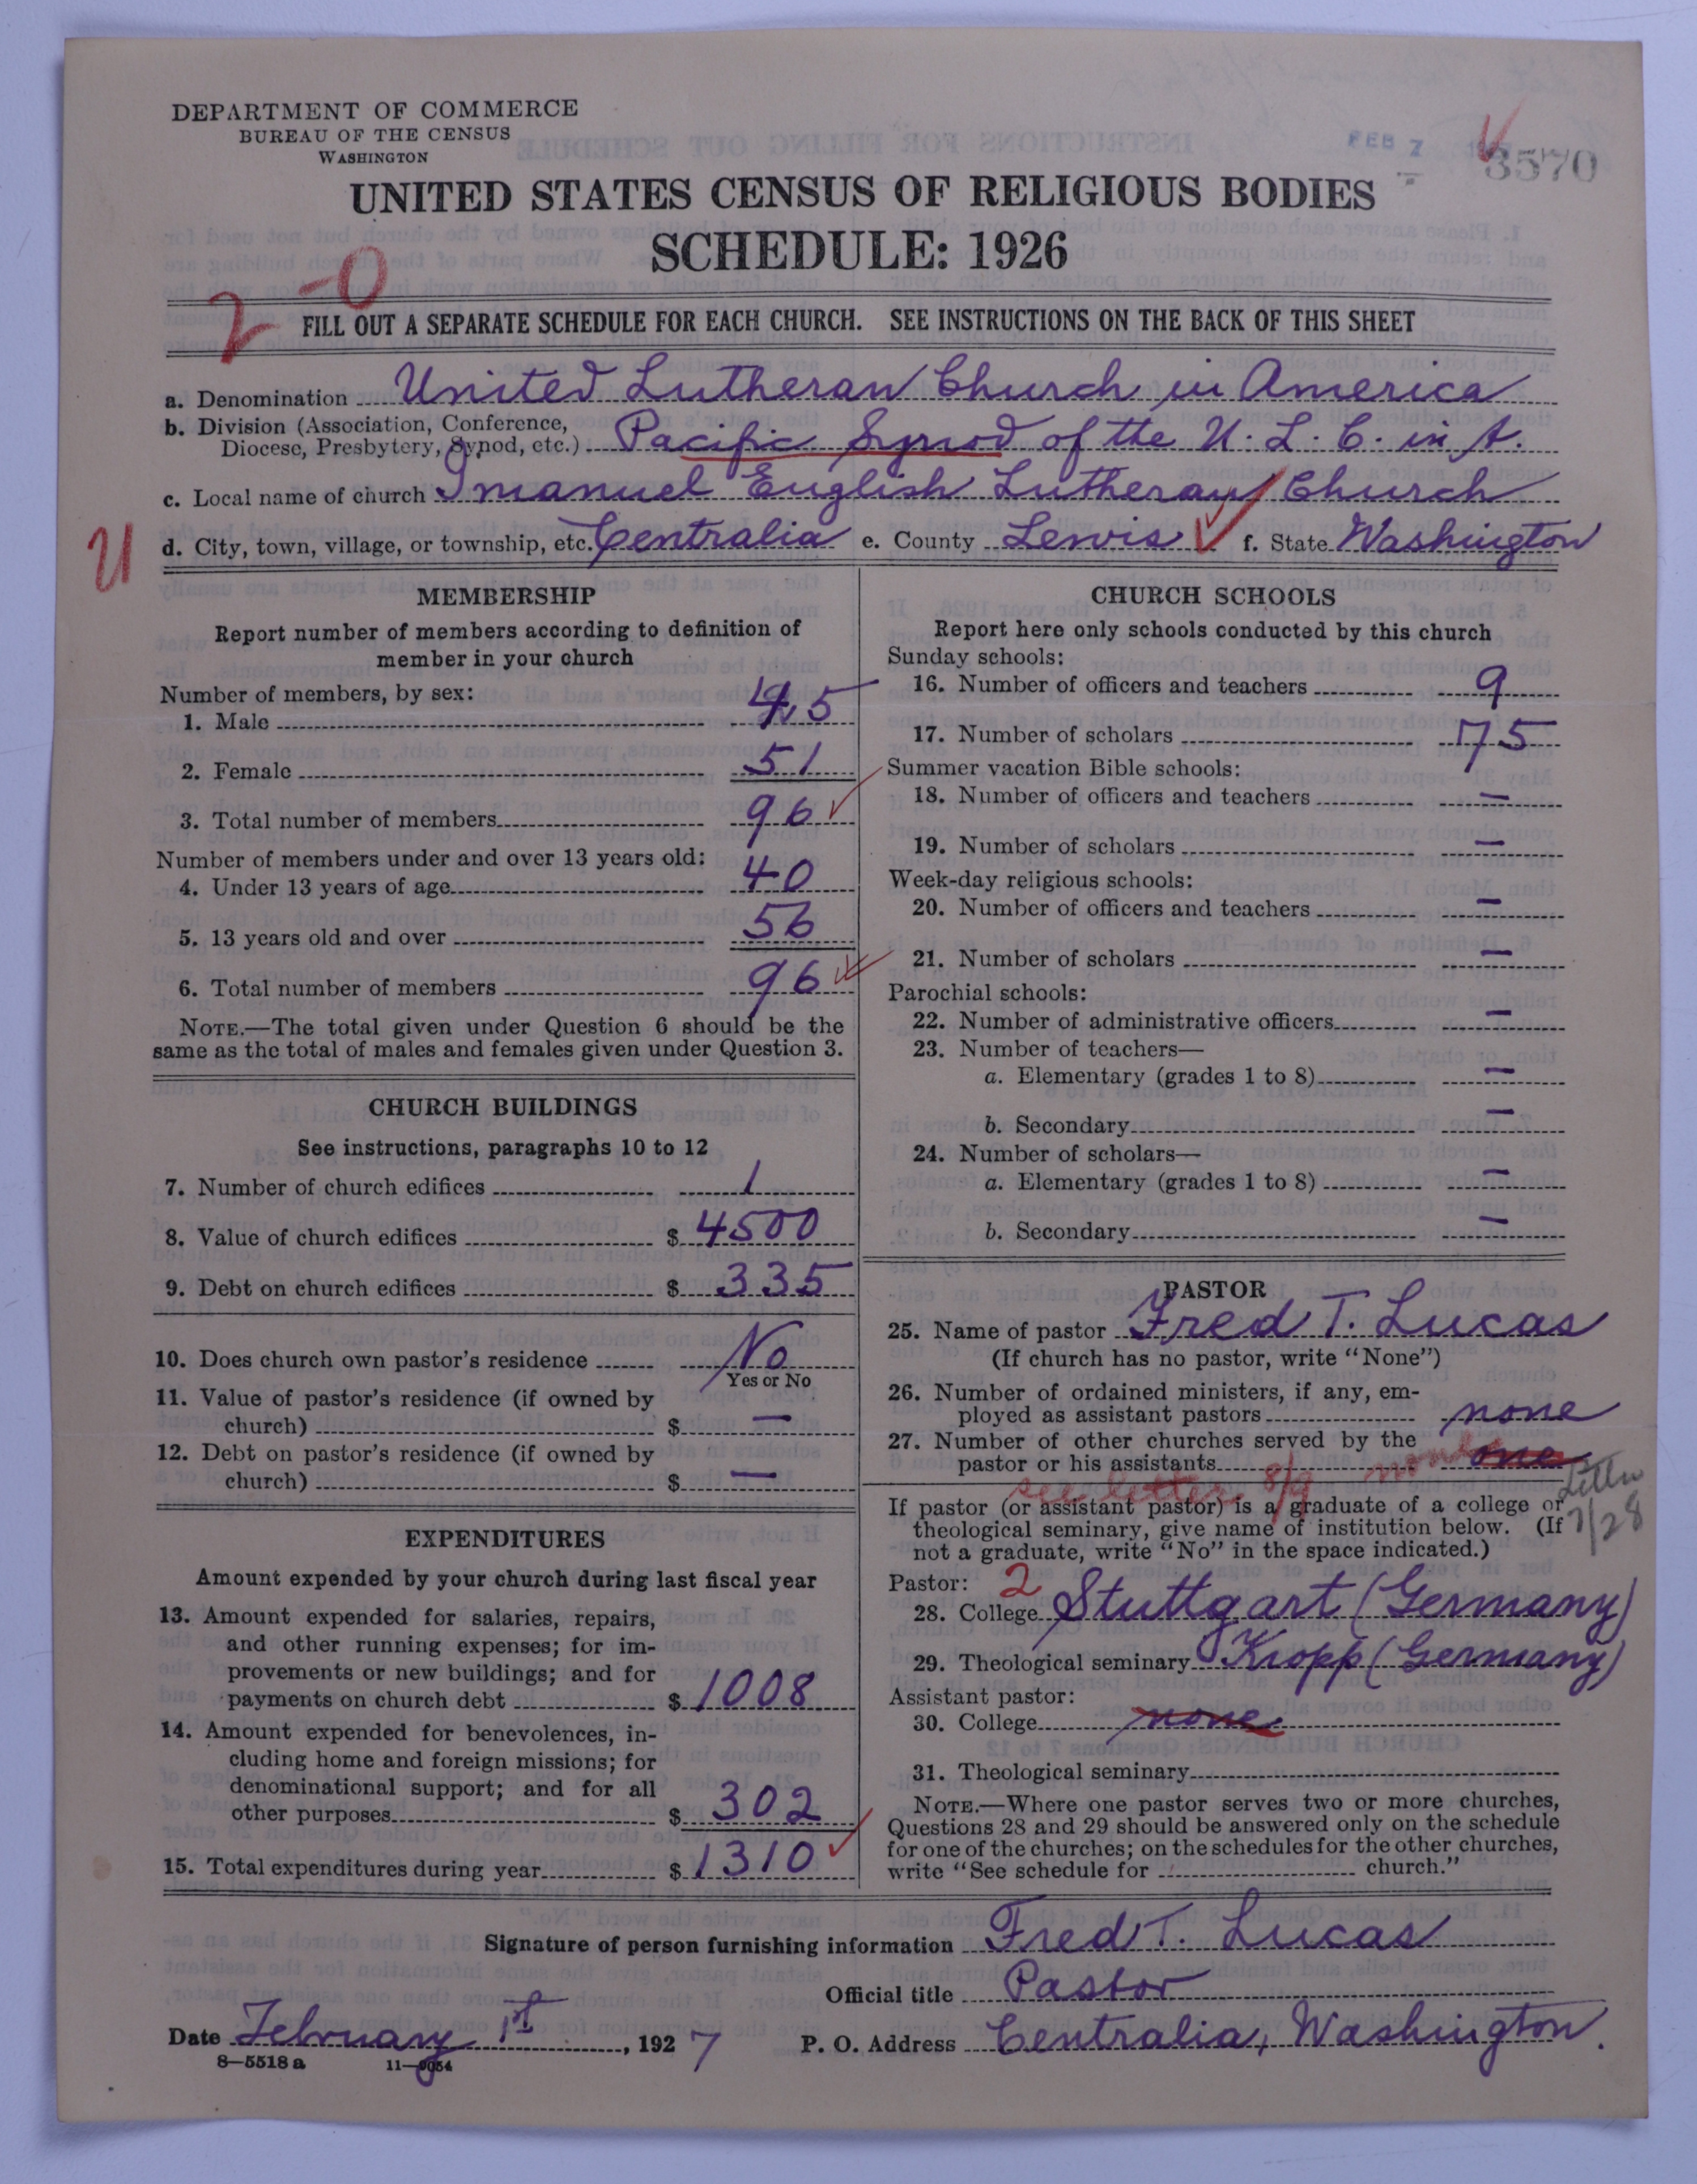 DEPARTMENT OF COMMERCE
BUREAU OF THE CENSUS
WASHINGTON
FEB 7
3570
UNITED STATES CENSUS OF RELIGIOUS BODIES
SCHEDULE: 1926
2 -0
FILL OUT A SEPARATE SCHEDULE FOR EACH CHURCH. SEE INSTRUCTIONS ON THE BACK OF THIS SHEET
a. Denomination United Lutheran Church in America
b. Division (Association, Conference,
Diocese, Presbytery, Synod, etc.) Pacific Synod of the U. L. C. in A.
c. Local name of church Imanuel English Lutheran Church
U d. City, town, village, or township, etc. Centralia e. County Lewis f. State Washington
MEMBERSHIP
Report number of members according to definition of
member in your church
Number of members, by sex:
1. Male 45
2. Female 51
3. Total number of members 96
Number of members under and over 13 years old:
4. Under 13 years of age 40
5. 13 years old and over 56
6. Total number of members 96
NOTE.—The total given under Question 6 should be the
same as the total of males and females given under Question 3.
CHURCH BUILDINGS
See instructions, paragraphs 10 to 12
7. Number of church edifices 1
8. Value of church edifices $ 4500
9. Debt on church edifices $ 335
10. Does church own pastor's residence No
Yes or No
11. Value of pastor's residence (if owned by
church) $ —
12. Debt on pastor's residence (if owned by
church) $ —
EXPENDITURES
Amount expended by your church during last fiscal year
13. Amount expended for salaries, repairs,
and other running expenses; for im-
provements or new buildings; and for
payments on church debt $ 1008
14. Amount expended for benevolences, in-
cluding home and foreign missions; for
denominational support; and for all
other purposes $ 302
15. Total expenditures during year $ 1310
CHURCH SCHOOLS
Report here only schools conducted by this church
Sunday schools:
16. Number of officers and teachers 9
17. Number of scholars 75
Summer vacation Bible schools:
18. Number of officers and teachers —
19. Number of scholars —
Week-day religious schools:
20. Number of officers and teachers —
21. Number of scholars —
Parochial schools:
22. Number of administrative officers —
23. Number of teachers—
a. Elementary (grades 1 to 8) —
b. Secondary —
24. Number of scholars—
a. Elementary (grades 1 to 8) —
b. Secondary —
PASTOR
25. Name of pastor Fred T. Lucas
(If church has no pastor, write "None")
26. Number of ordained ministers, if any, em-
ployed as assistant pastors none
27. Number of other churches served by the
pastor or his assistants none one
see letter 8/9
Letter
7/28
If pastor (or assistant pastor) is a graduate of a college or
theological seminary, give name of institution below. (If
not a graduate, write "No" in the space indicated.)
Pastor: 2
28. College Stuttgart (Germany)
29. Theological seminary Kropp (Germany)
Assistant pastor:
30. College none
31. Theological seminary
NOTE.—Where one pastor serves two or more churches,
Questions 28 and 29 should be answered only on the schedule
for one of the churches; on the schedules for the other churches,
write "See schedule for church."
Signature of person furnishing information Fred T. Lucas
Official title Pastor
Date February 1st, 1927 P. O. Address Centralia, Washington.
8—5518 a 11—9054